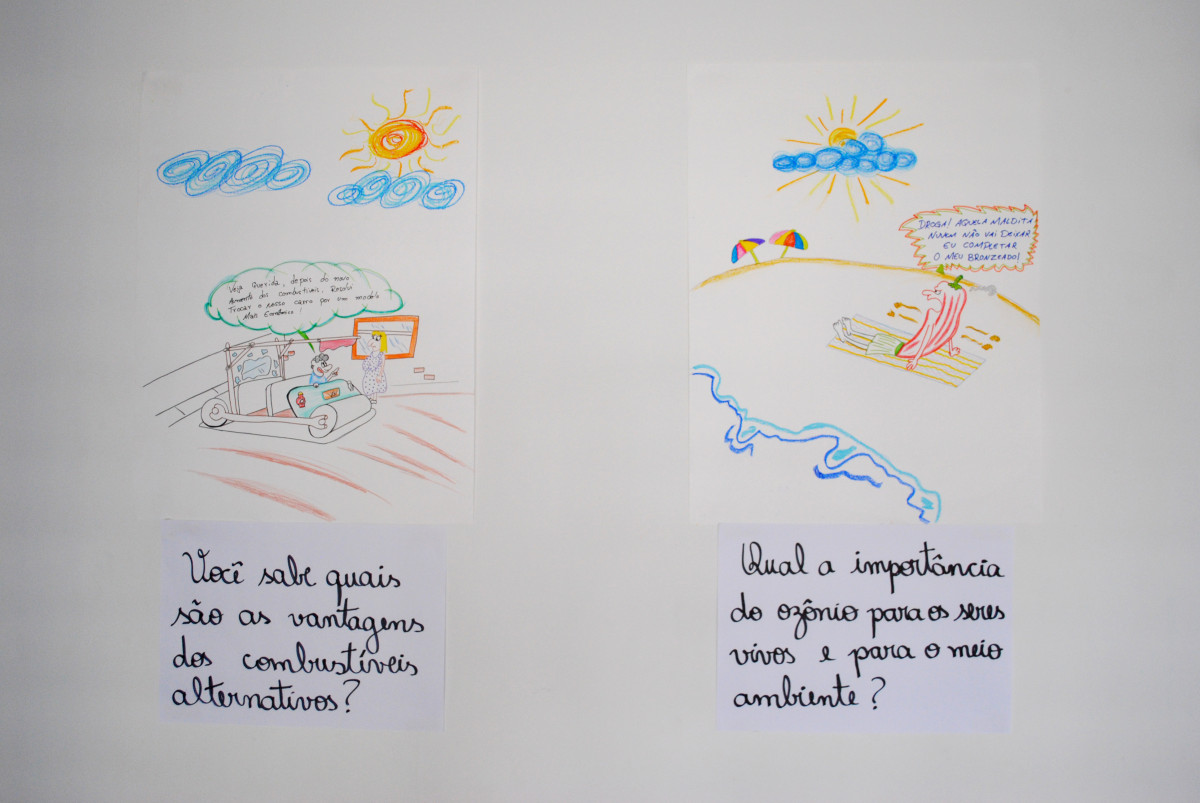 Veja Querida, depois do novo
Aumento dos combustíveis, Resolvi
Trocar o nosso carro por um modelo
Mais Econômico!
Você sabe quais
são as vantagens
dos combustíveis
alternativos?
DROGA! AQUELA MALDITA
NUVEM NÃO VAI DEIXAR
EU COMPLETAR
O MEU BRONZEADO!
Qual a importância
do ozônio para os seres
vivos e para o meio
ambiente?